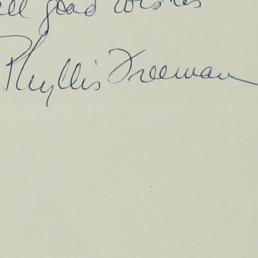 all good wishes
Phyllis Freeman